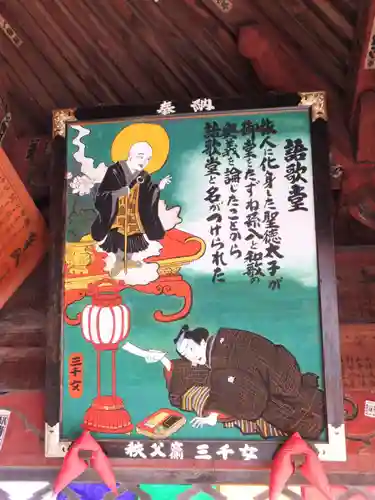 奉納
語歌堂
旅人に化身した聖徳太子が
御堂をたずね孫八と和歌の
奥義を論じたことから
語歌堂と名がつけられた
三千女
秩父篭 三千女